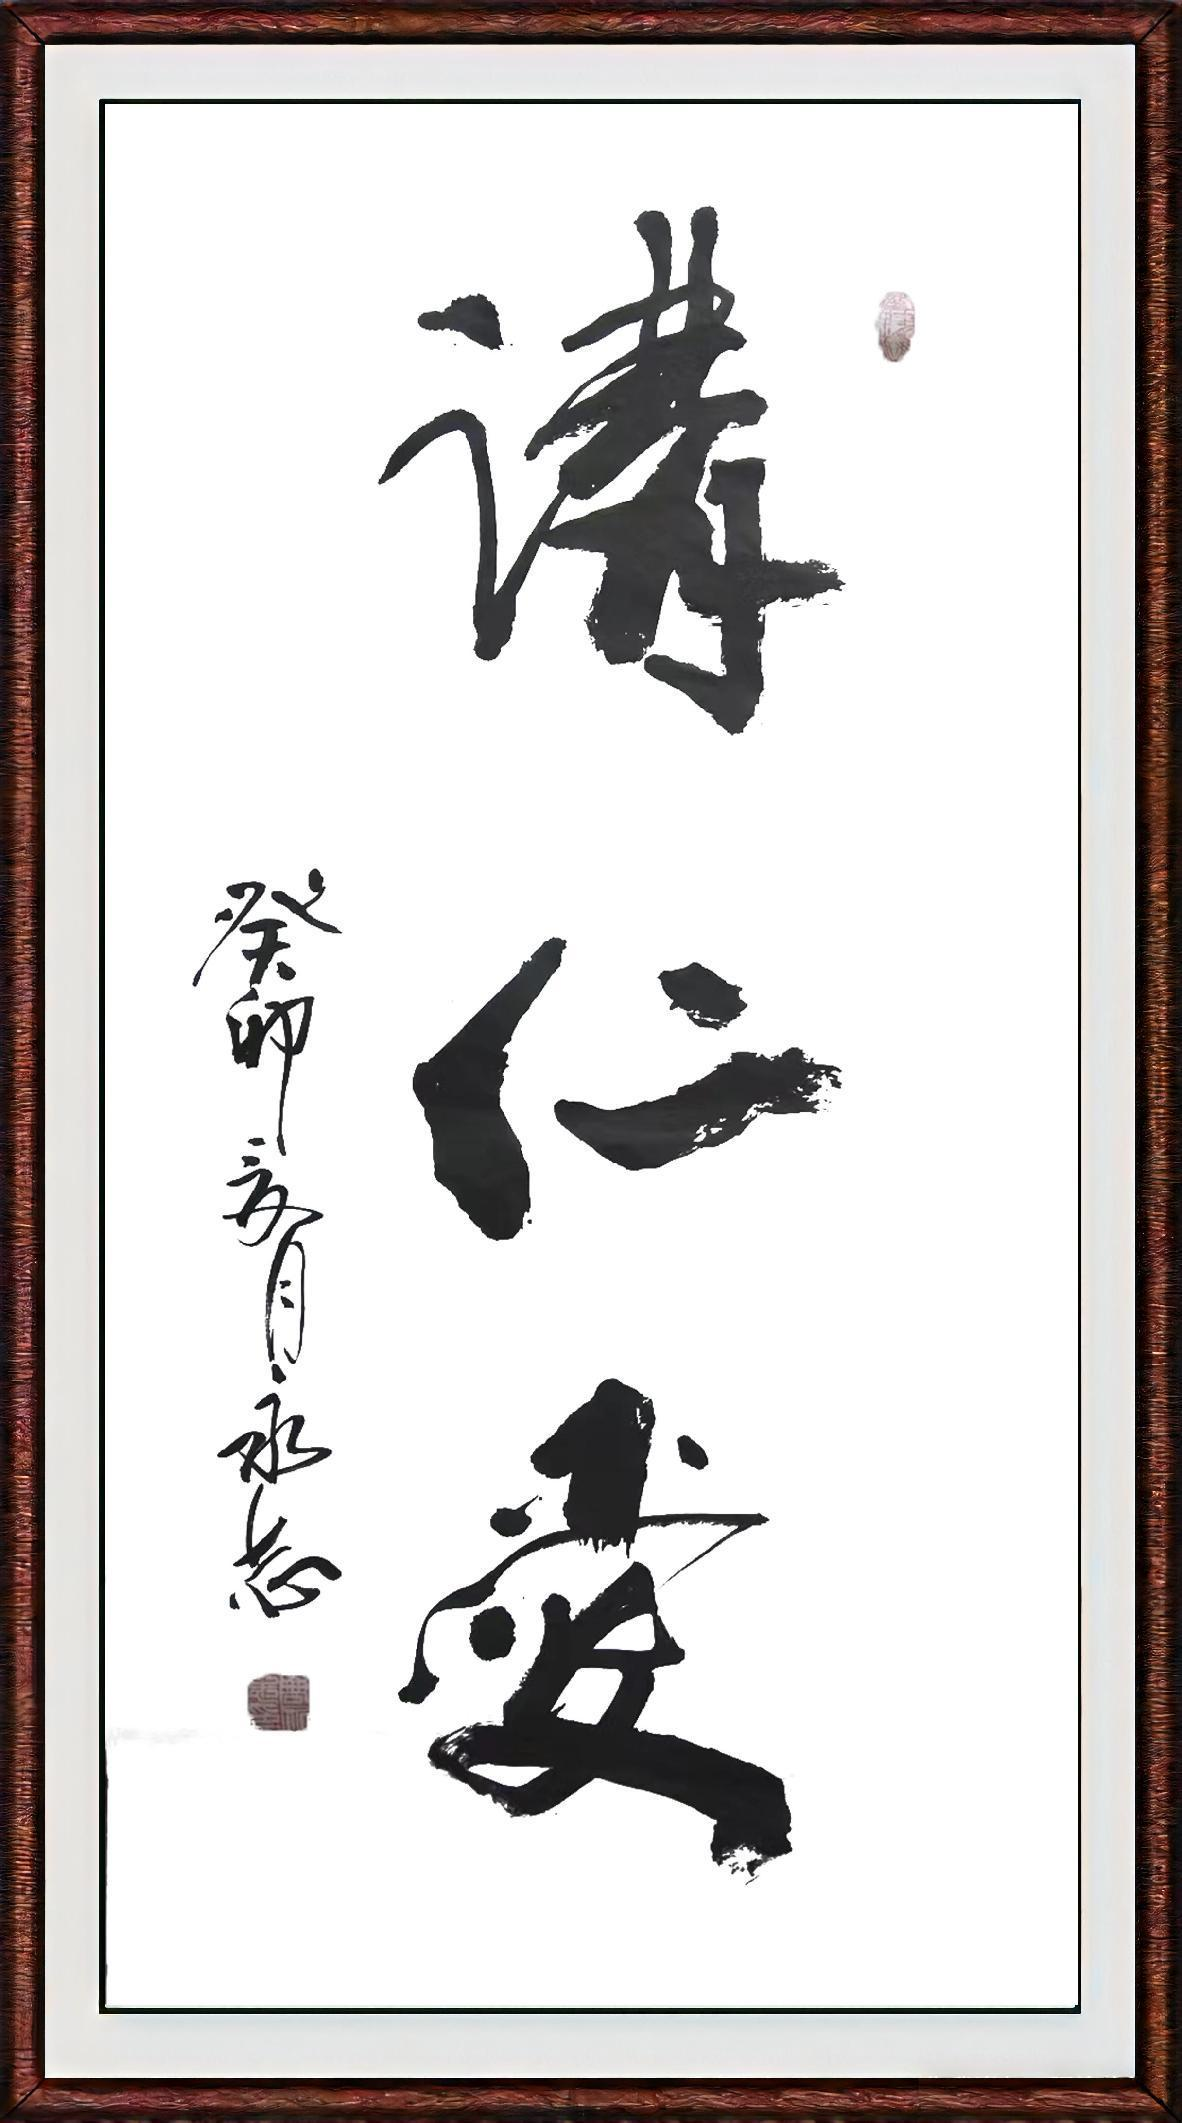 講仁愛
癸卯亥月永志